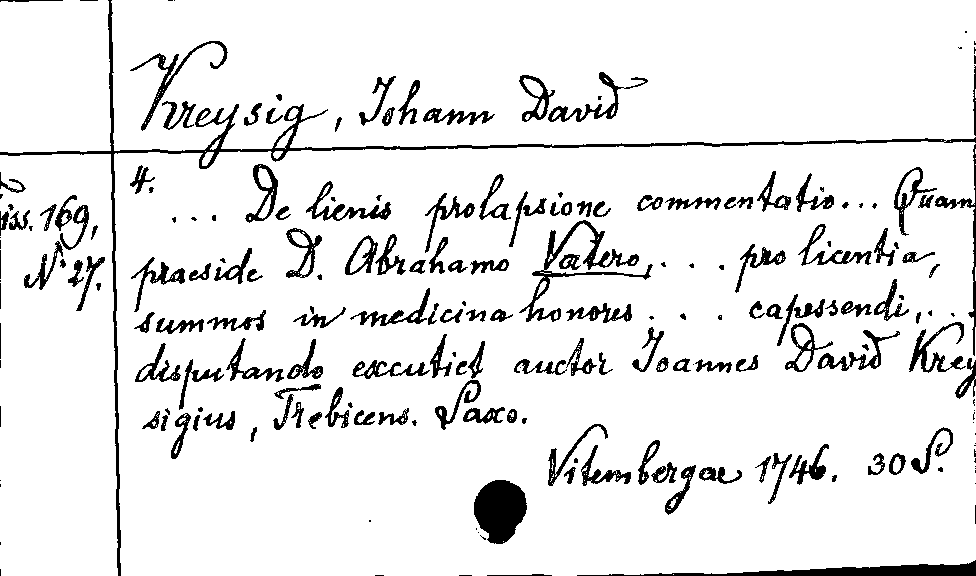 Kreysig, Johann David
4.
iss. 169,
N. 27.
... De lienis prolapsione commentatio... Quam
praeside D. Abrahamo Vatero, . . . pro licentia,
summos in medicina honores . . . capessendi, . . .
disputando excutiet auctor Joannes David Krey
sigius, Trebicens. Saxo.
Vitembergae 1746. 30 S.